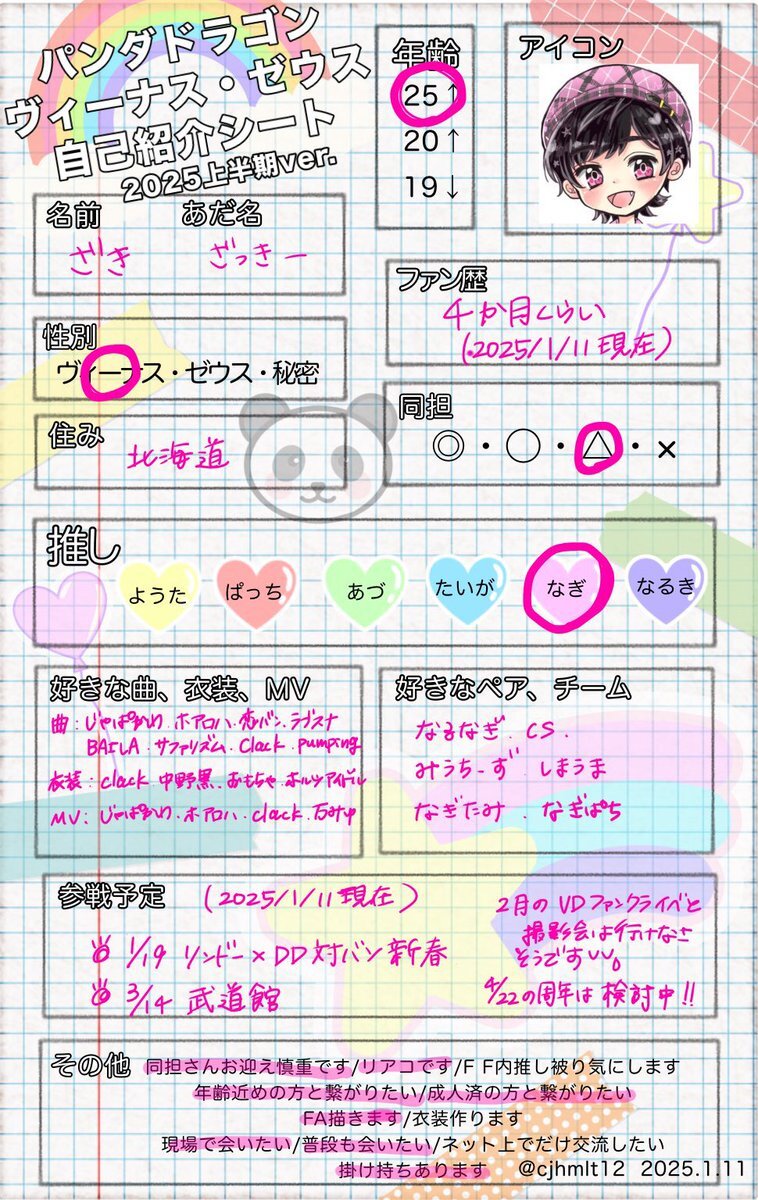 パンダドラゴン
ヴィーナス・ゼウス
自己紹介シート
2025上半期ver.
年齢
25↑
20↑
19↓
アイコン
名前 あだ名
ざき ざっきー
ファン歴
4か月くらい
(2025/1/11現在)
性別
ヴィーナス・ゼウス・秘密
同担
◎・○・△・×
住み
北海道
推し
ようた ぱっち あづ たいが なぎ なるき
好きな曲、衣装、MV
曲:じゃぱかり.ホアロハ.恋バン.ラブスナ
BAILA.サファリズム.Clack.pumping
衣装:clack.中野黒.おもちゃ.ホルツアイドル
MV:じゃぱかり.ホアロハ.clack.万みゆ
好きなペア、チーム
なるなぎ.CS.
みうちーず.しまうま
なぎたみ.なぎぱち
参戦予定 (2025/1/11現在)
1/19 リンドー×DD対バン新春
3/14 武道館
2月のVDファンクライベと
撮影会は行けなさ
そうです
4/22の周年は検討中!!
その他 同担さんお迎え慎重です/リアコです/FF内推し被り気にします
年齢近めの方と繋がりたい/成人済の方と繋がりたい
FA描きます/衣装作ります
現場で会いたい/普段も会いたい/ネット上でだけ交流したい
掛け持ちあります @cjhmlt12 2025.1.11